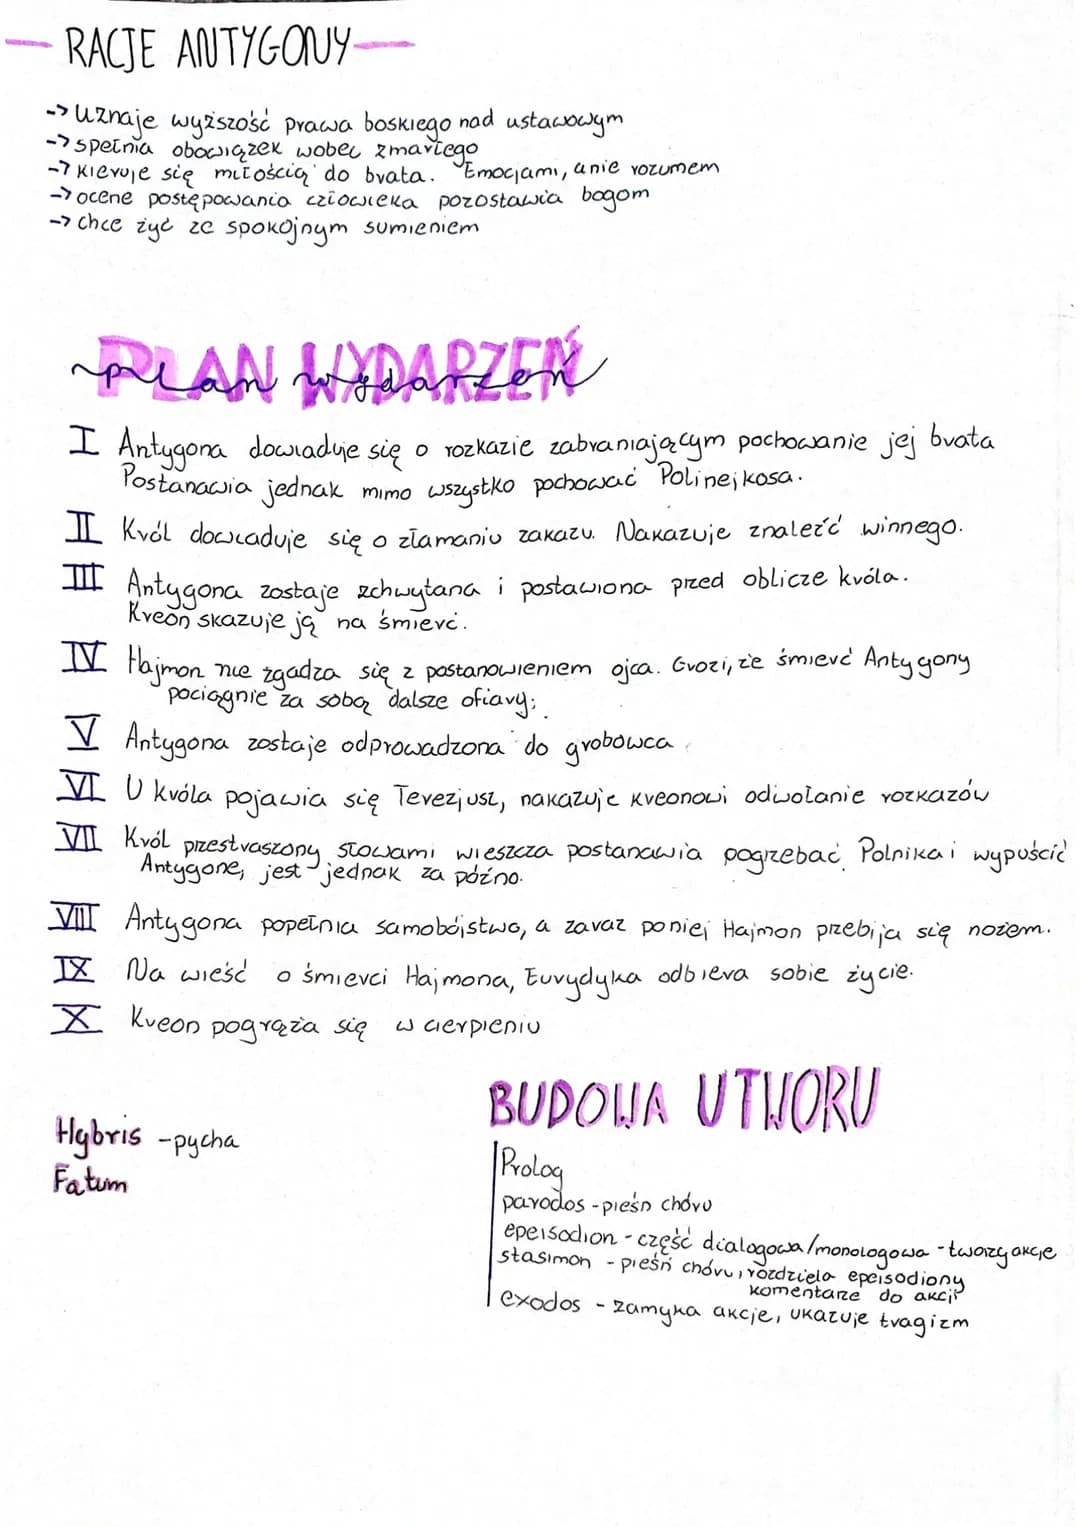 RACJE ANTYGONY
-> Uznaje wyższość prawa boskiego nad ustawowym
-> spełnia obowiązek wobec zmarłego
-> kieruje się miłością do brata. Emocjami, a nie rozumem
-> ocene postępowania człowieka pozostawia bogom
-> chce żyć ze spokojnym sumieniem
PLAN WYDARZEŃ
plan wydarzeń
I Antygona dowiaduje się o rozkazie zabraniającym pochowanie jej brata
Postanawia jednak mimo wszystko pochować Polinejkosa.
II Król dowiaduje się o złamaniu zakazu. Nakazuje znaleźć winnego.
III Antygona zostaje zchwytana i postawiona przed oblicze króla.
Kreon skazuje ją na śmierć.
IV Hajmon nie zgadza się z postanowieniem ojca. Grozi, że śmierć Antygony
pociągnie za sobą dalsze ofiary;
V Antygona zostaje odprowadzona do grobowca
VI U króla pojawia się Terezjusz, nakazuje Kreonowi odwołanie rozkazów
VII Król przestraszony słowami wieszcza postanawia pogrzebać Polnika i wypuścić
Antygone, jest jednak za późno.
VIII Antygona popełnia samobójstwo, a zaraz po niej Hajmon przebija się nożem.
IX Na wieść o śmierci Hajmona, Eurydyka odbiera sobie życie.
X Kreon pogrąża się w cierpieniu
Hybris - pycha
Fatum
BUDOWA UTWORU
Prolog
parodos - pieśń chóru
epeisodion - część dialogowa/monologowa - tworzy akcje
stasimon - pieśń chóru, rozdziela epeisodiony
komentarze do akcji
exodos - zamyka akcje, ukazuje tragizm